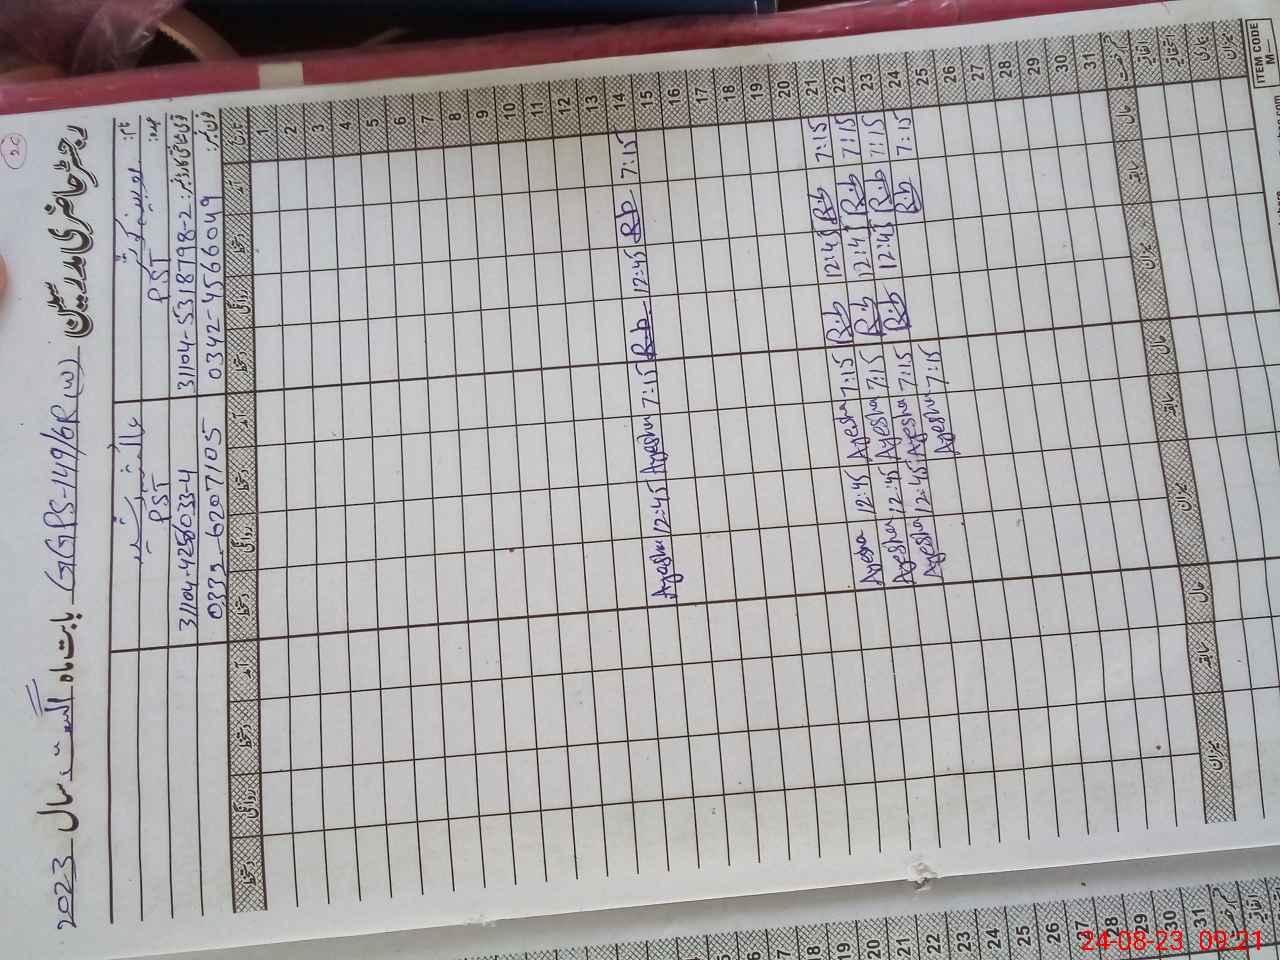 رجسٹر حاضری مدرسین GGPS-149/6R (W) بابت ماہ اگست سال 2023
نام:
عہدہ: PST PST
قومی شناختی کارڈ نمبر: 31104-5318798-2 31104-4258033-4
فون نمبر: 0342-4566049 0333-6207105
تاریخ آمد دستخط روانگی دستخط آمد دستخط روانگی دستخط آمد دستخط روانگی دستخط
1
2
3
4
5
6
7
8
9
10
11
12
13
14 7:15 R.b 12:45 R.b 7:15 Ayesha 12:45 Ayesha
15
16
17
18
19
20
21 7:15 R.b 12:45 R.b 7:15 Ayesha 12:45 Ayesha
22 7:15 R.b 12:45 R.b 7:15 Ayesha 12:45 Ayesha
23 7:15 R.b 12:45 R.b 7:15 Ayesha 12:45 Ayesha
24 7:15 R.b 7:15 Ayesha
25
26
27
28
29
30
31
قسم رخصت حال سابقہ میزان حال سابقہ میزان حال سابقہ میزان
اتفاقیہ
استحقاقیہ
بیماری
میزان
ITEM CODE
M—
17
18
19
20
21
22
23
24
25
26
27
28
29
30
31
قسم رخصت
اتفاقیہ
24-08-23 09:21